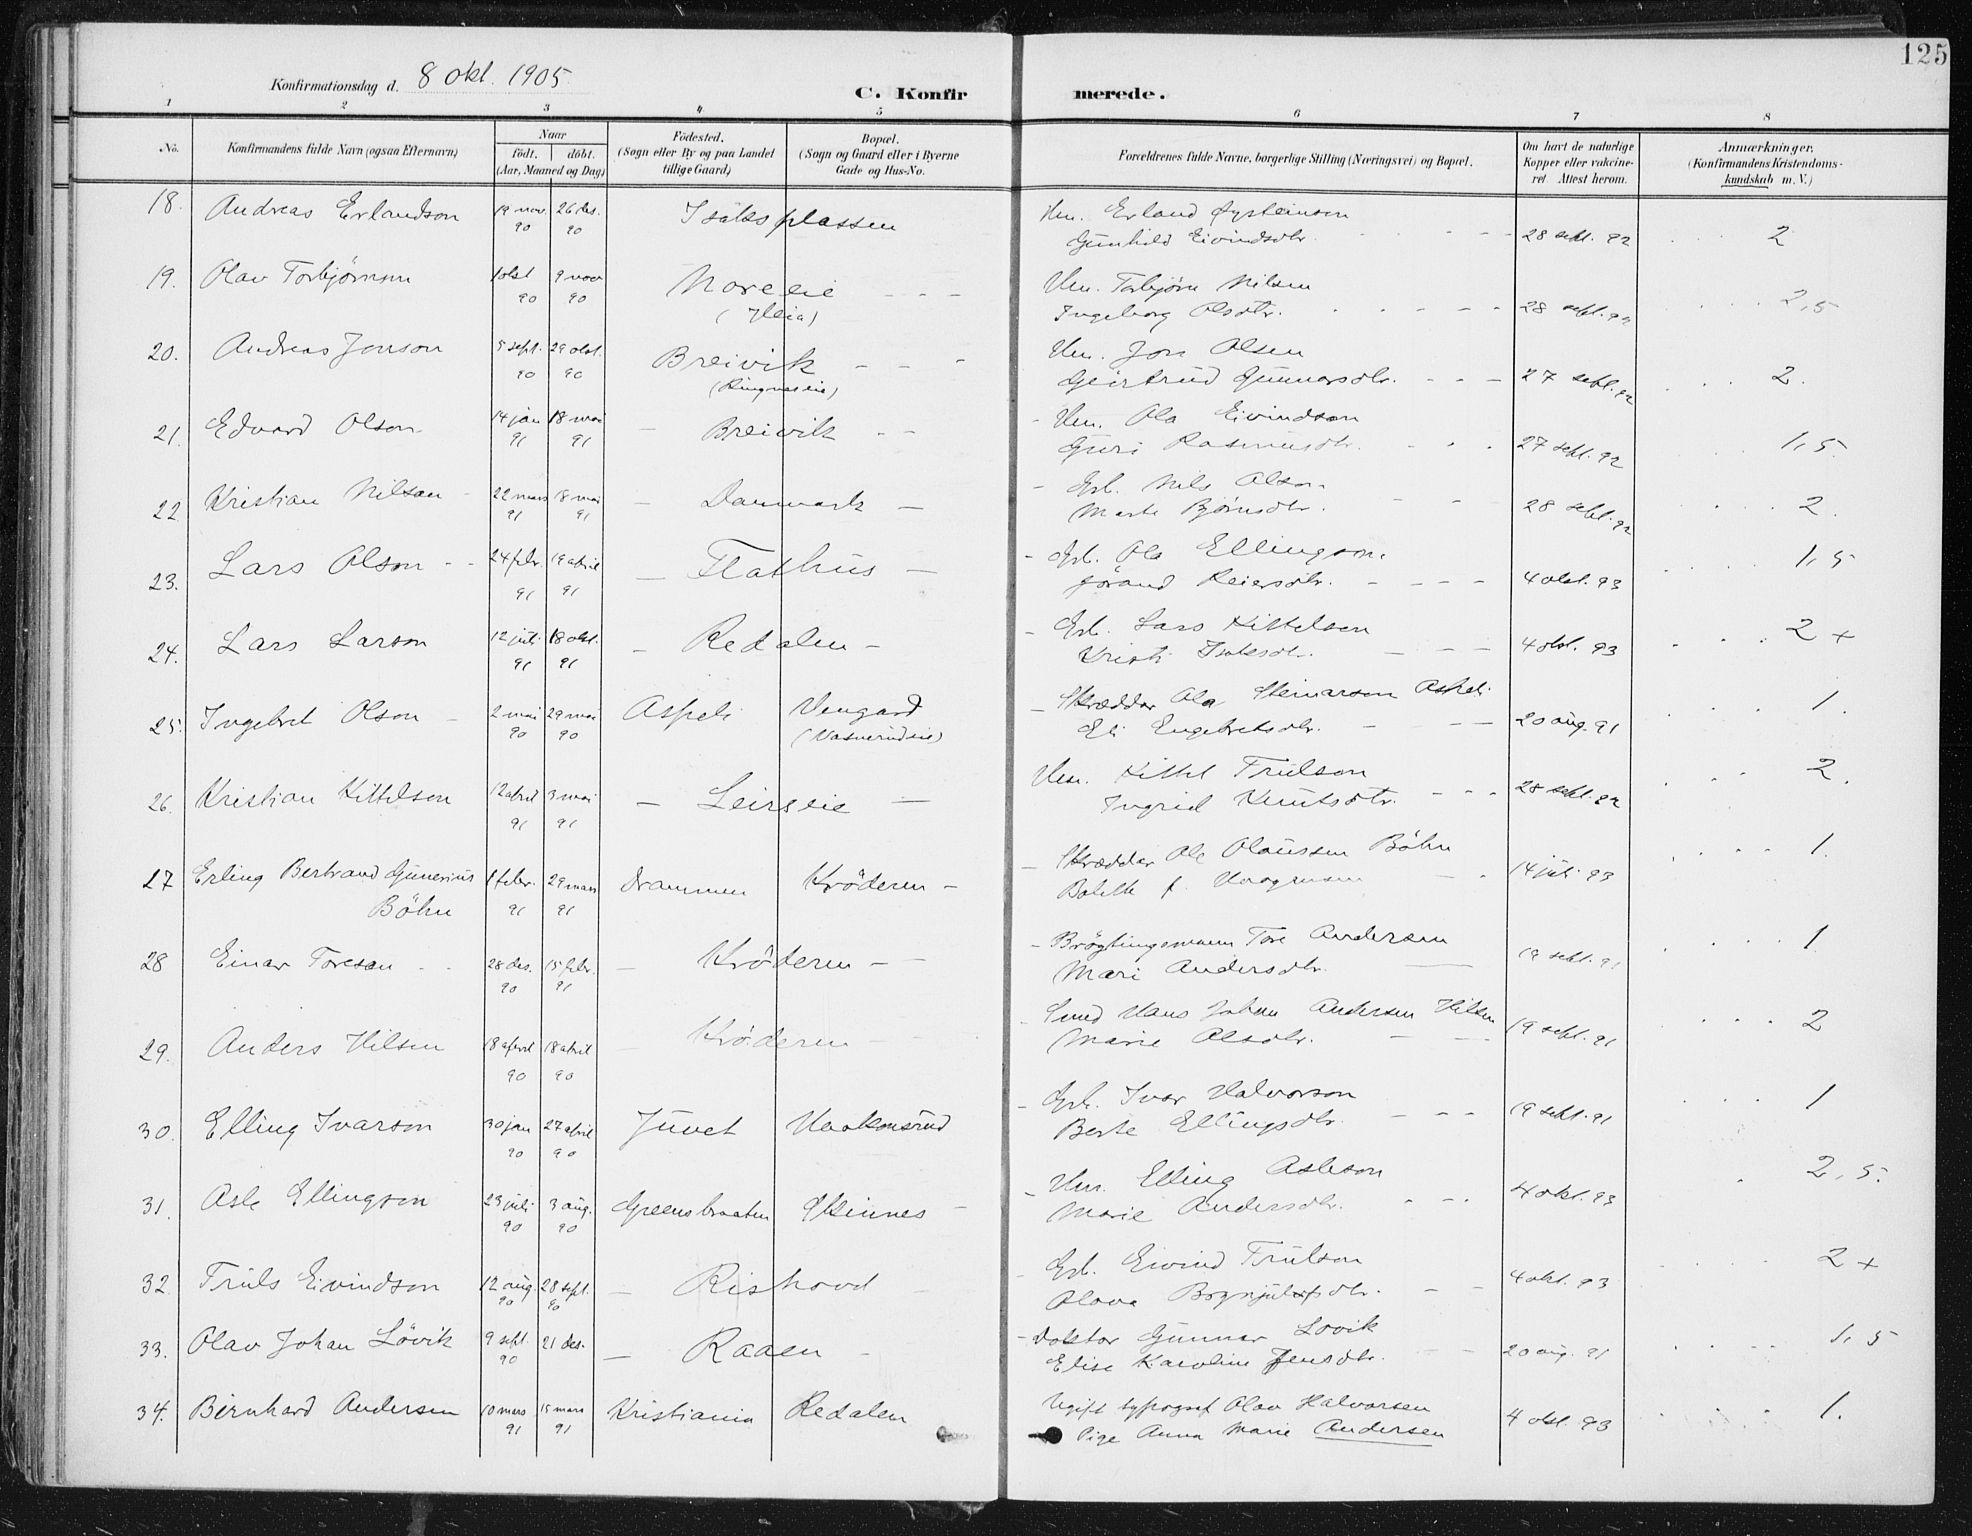 125
Konfirmationsdag d. 8 okt. 1905
C. Konfirmerede.
1 2 3 4 5 6 7 8
No. Konfirmandens fulde Navn (ogsaa Efternavn) Naar född, döbt. (Aar, Maaned og Dag) Födested. (Sogn eller By og paa Landet tillige Gaard) Bopæl. (Sogn og Gaard eller i Byerne Gade og Hus-No. Forældrenes fulde Navne, borgerlige Stilling (Næringsvei) og Bopæl. Om havt de naturlige Kopper eller vakcineret. Attest herom. Anmærkninger. (Konfirmandens Kristendomskundskab m. V.)
18. Andreas Erlandson 19 nov. 90 26 des. 90 Isaksplassen Hm. Erland Øysteinson
Gunhild Eivindsdtr. 28 sept. 92 2
19. Olav Torbjørnson 1 okt 90 9 nov 90 Noreeie Hm. Torbjørn Nilsen
(Ileia) Ingeborg Olsdtr. 28 sept. 92 2,5
20. Andreas Jonson 5 sept. 90 29 okt. 90 Breivik Hm. Jon Olsen
(Ringneseie) Geirtrud Gunnarsdtr. 27 sept. 92 2.
21. Edvard Olson 14 jan 91 18 mai 91 Breivik Hm. Ola Eivindson
Guri Rasmusdtr. 27 sept. 92 1,5
22 Kristian Nilson 22 mars 91 18 mai 91 Danmark Gbr. Nils Olson
Marte Bjørnsdtr. 28 sept. 92 2.
23. Lars Olson 24 febr. 91 19 april 91 Flathus Gbr. Ola Ellingson.
Jørand Reiersdtr. 4 okt. 93 1,5
24. Lars Larson 12 juli 91 18 okt. 91 Redalen Gbr. Lars Kittelsen
Kristi Isaksdtr. 4 okt. 93 2 +
25. Ingebret Olson 2 mai 90 29 mai 90 Aspeli Vengard Skrædder Ola Steinarson Aspeli
Eli Engebretsdtr. 20 aug. 91 1.
26. Kristian Kittelson 12 april 91 3 mai 91 Leirseie Hm. Kittel Trulson
Ingrid Knutsdtr. 28 sept. 92 2.
27 Erling Bertrand Gunerius 1 febr. 91 29 mars 91 Drammen Krøderen Skrædder Ole Olaussen Böhn
Böhn Bolette f. 14 juli 93 1.
28 Einar Toreson 28 des. 90 15 febr. 91 Krøderen Tore Andersen
Mari Andersdtr. 19 sept. 91 1
29. Anders Hilsen 18 april 90 18 april 90 Krøderen Smed Hans Johan Andersen Hilsen
Marie Olsdtr. 19 sept. 91 2
30. Elling Ivarson 30 jan 90 27 april 90 Juvet Haakonsrud Gbr. Ivar Halvorson
Berte Ellingsdtr. 19 sept. 91 1
31. Asle Ellingson 23 juli 90 3 aug. 90 Greensbraaten Skinnes Hm. Elling Asleson
Marie Andersdtr. 4 okt. 93 2,5.
32. Truls Eivindson 12 aug. 90 28 sept. 90 Rishovd Gbr. Eivind Trulson
Olava Borgnjulsdtr. 4 okt. 93 2 +
33. Olav Johan Lövik 9 sept. 90 21 des. Raaen Doktor Gunnar Lövik
Elise Karoline Jensdtr. 20 aug. 91 1,5
34. Bernhard Andersen 10 mars 91 15 mars 91 Kristiania Redalen Ugift typograf Olav Halvorsen
Pige Anna Marie Andersen 4 okt. 93 1.